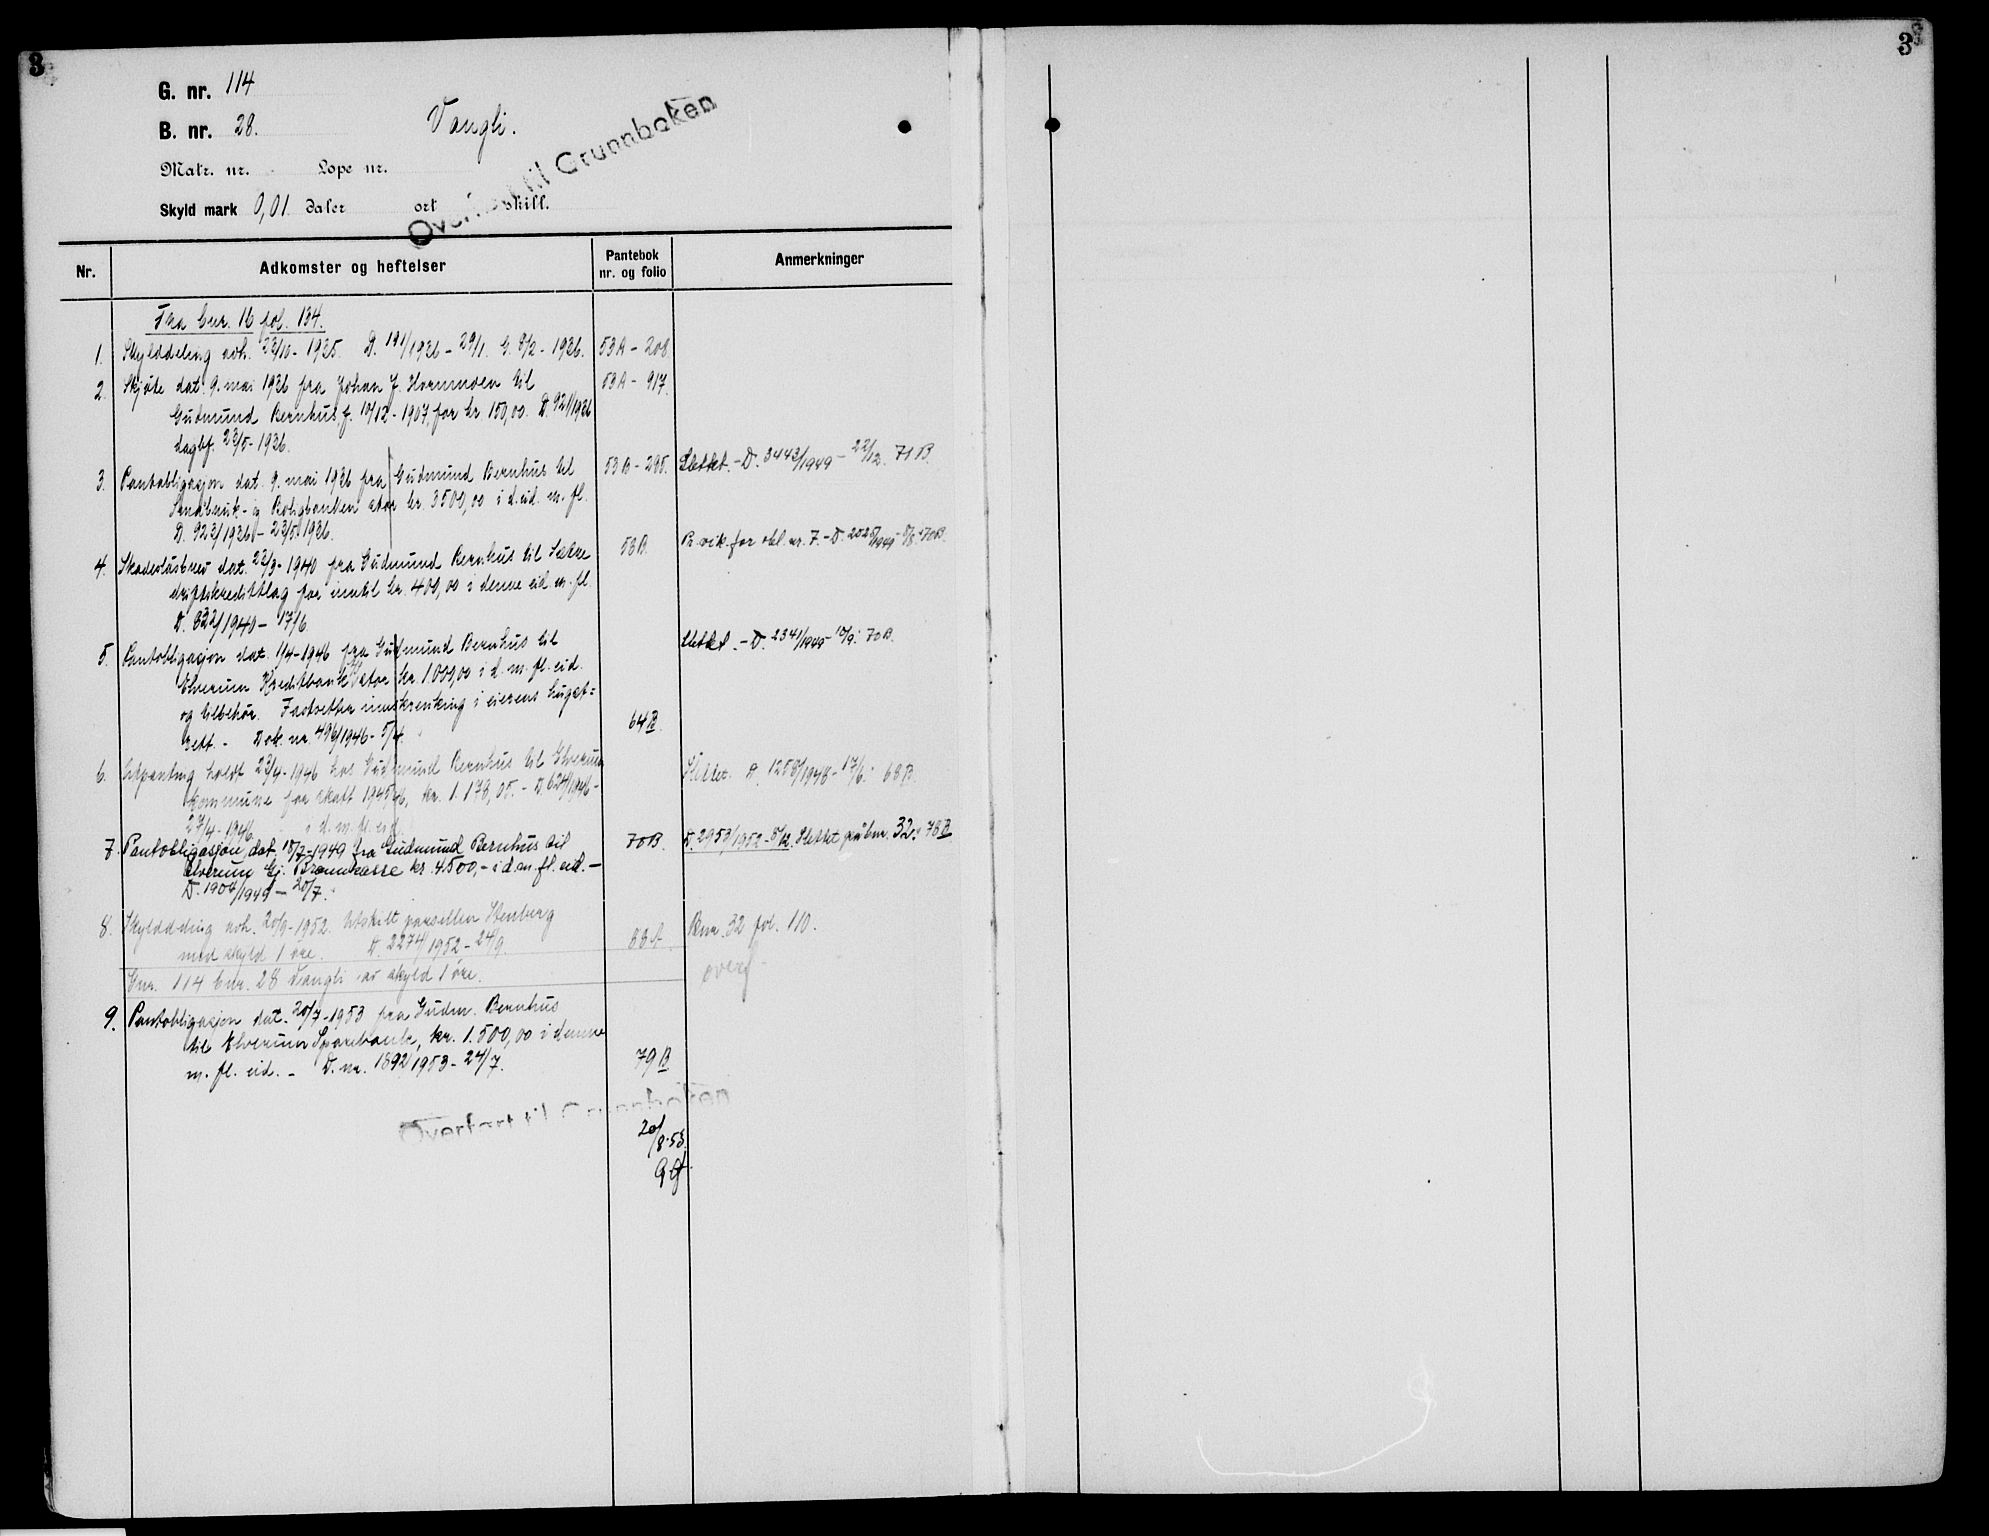 3
3
G. nr. 114
B. nr. 28. Vangli.
Matr. nr. Løpe nr.
Skyld mark 0,01 daler ort skill.
Overført til Grunnboken
Nr. Adkomster og heftelser Pantebok nr. og folio Anmerkninger
Fra bnr. 16 fol. 134.
1. Skylddeling avh. 22/10-1925. D. 191/1926 - 29/1. G. 8/2 - 1926. 53A - 208
2. Skjøte dat. 9. mai 1936 fra Johan J. Hornmoen til 53A - 917.
Gudmund Bernhus, f. 10/12-1907, for kr 150,00. D. 921/1936
dagbf. 23/5-1936.
3. Pantobligasjon dat. 9. mai 1936 fra Gudmund Bernhus til 53B - 295. Slettet. - D. 3443/1949 - 22/12. 71B.
Småbruk- og Boligbanken stor kr. 3500,00 i d. eid. m. fl.
D. 923/1936 - 23/5 1936.
4. Skadesløsbrev dat. 22/3-1940 fra Gudmund Bernhus til 53B. Pr. vik. for obl. nr. 7. - D. 2025/1949 - 5/8. 70B.
driftskredittlag for inntil kr. 400,00 i denne eid m. fl.
D. 822/1940 - 17/6
5. Pantobligasjon dat. 1/4-1946 fra Gudmund Bernhus til Slettet. - D. 2341/1949 - 10/9. 70B.
Elverum Kreditbank stor kr. 1000,00 i d. m. fl. eid.
og tilbehør. Fastsetter innskrenking i eierens hugst=
rett. - Dok. nr. 496/1946 - 5/4. 64B.
6. Utpanting holdt 23/4-1946 hos Gudmund Bernhus til Elverum Slettet. D. 1258/1948 - 17/6. 68B.
kommune for skatt 1945/46, kr. 1.178,05. - D. 624/1946 -
27/4-1946. i d. m. fl. eid.
7. Pantobligasjon dat. 18/7-1949 fra Gudmund Bernhus til 70B D. 2953/1952 - 8/12. Slettet på bnr. 32. 78B
Elverum Gj. Brannkasse kr. 4500,- i d. m. fl. eid. -
D. 1904/1949 - 20/7.
8. Skylddeling avh. 20/9-1952. Utskilt parsellen Stenberg Bnr. 32 fol. 110.
med skyld 1 øre. D. 2274/1952 - 24/9.
Gnr. 114 bnr. 28 Vangli av skyld 1 øre. overf.
9. Pantobligasjon dat. 20/7-1953 fra Gudm. Bernhus
til Elverum Sparebank, kr. 1.500,00 i denne
m. fl. eid. - D. nr. 1892/1953 - 24/7. 79B
Overført til Grunnboken
20/8-53.